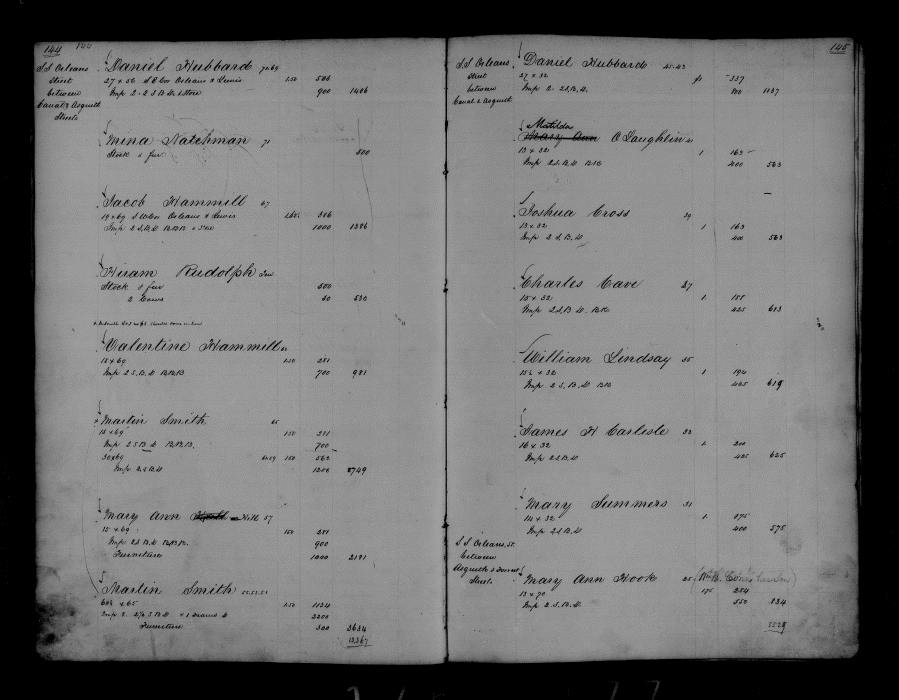 144 144
S.S Orleans
Street
between
Canal & Asquith
Streets
Daniel Hubbard 72.69
27 x 56 S E Cor Orleans & Lewis 1.50 506
Imp 2 - 2 S B. H. & Store 900 1406
Mina Natchman 71
Stock & fur 500
Jacob Hammill 67
19 x 69 S W Cor Orleans & Lewis 386
Imp 2 S. B. H B.B.B & Store 1000 1386
Hiram Rudolph
Stock & fur 500
2 Cows 30 530
Valentine Hammill
15 x 69 1.50 281
Imp 2 S. B. H B.B.B 700 981
Martin Smith 65
15 x 69 150 281
Imp 2 S B. H B.B.B. 700
30 x 69 150 562
Imp 2. S B H 1206 2749
Mary Ann Hill 57
15 x 69 150 281
Imp 2 S B H B.B.B. 900
Furniture 1000 2181
Martin Smith 55.53.51
60½ x 65 1.50 1134
2200
Furniture 300 3634
13,367
145
S.S Orleans
Street
between
Canal & Asquith
Daniel Hubbard 45.43
27 x 32 337
Imp 2. 2 S. B. H. 800 1137
Matilda
Mary Ann O Laughlin 41
13 x 32 1 163
Imp 2 S. B. H B.B 400 563
Joshua Cross 39
13 x 32 1 163
Imp 2 S. B. H 400 563
Charles Cave 37
15 x 32 1 188
Imp 2 S. B. H. B.B. 425 613
William Lindsay 35
15½ x 32 1 194
Imp 2 S. B. H B.B 425 619
James H Carlisle 33
16 x 32 1 200
Imp 2 S. B. H 425 625
Mary Summers 31
14 x 32 1 175
Imp 2 S B. H 400 575
S S Orleans St.
between
Asquith &
Streets
Mary Ann Hook 25
13 x 70 175 284
Imp 2. S. B. H. 550 834
5529